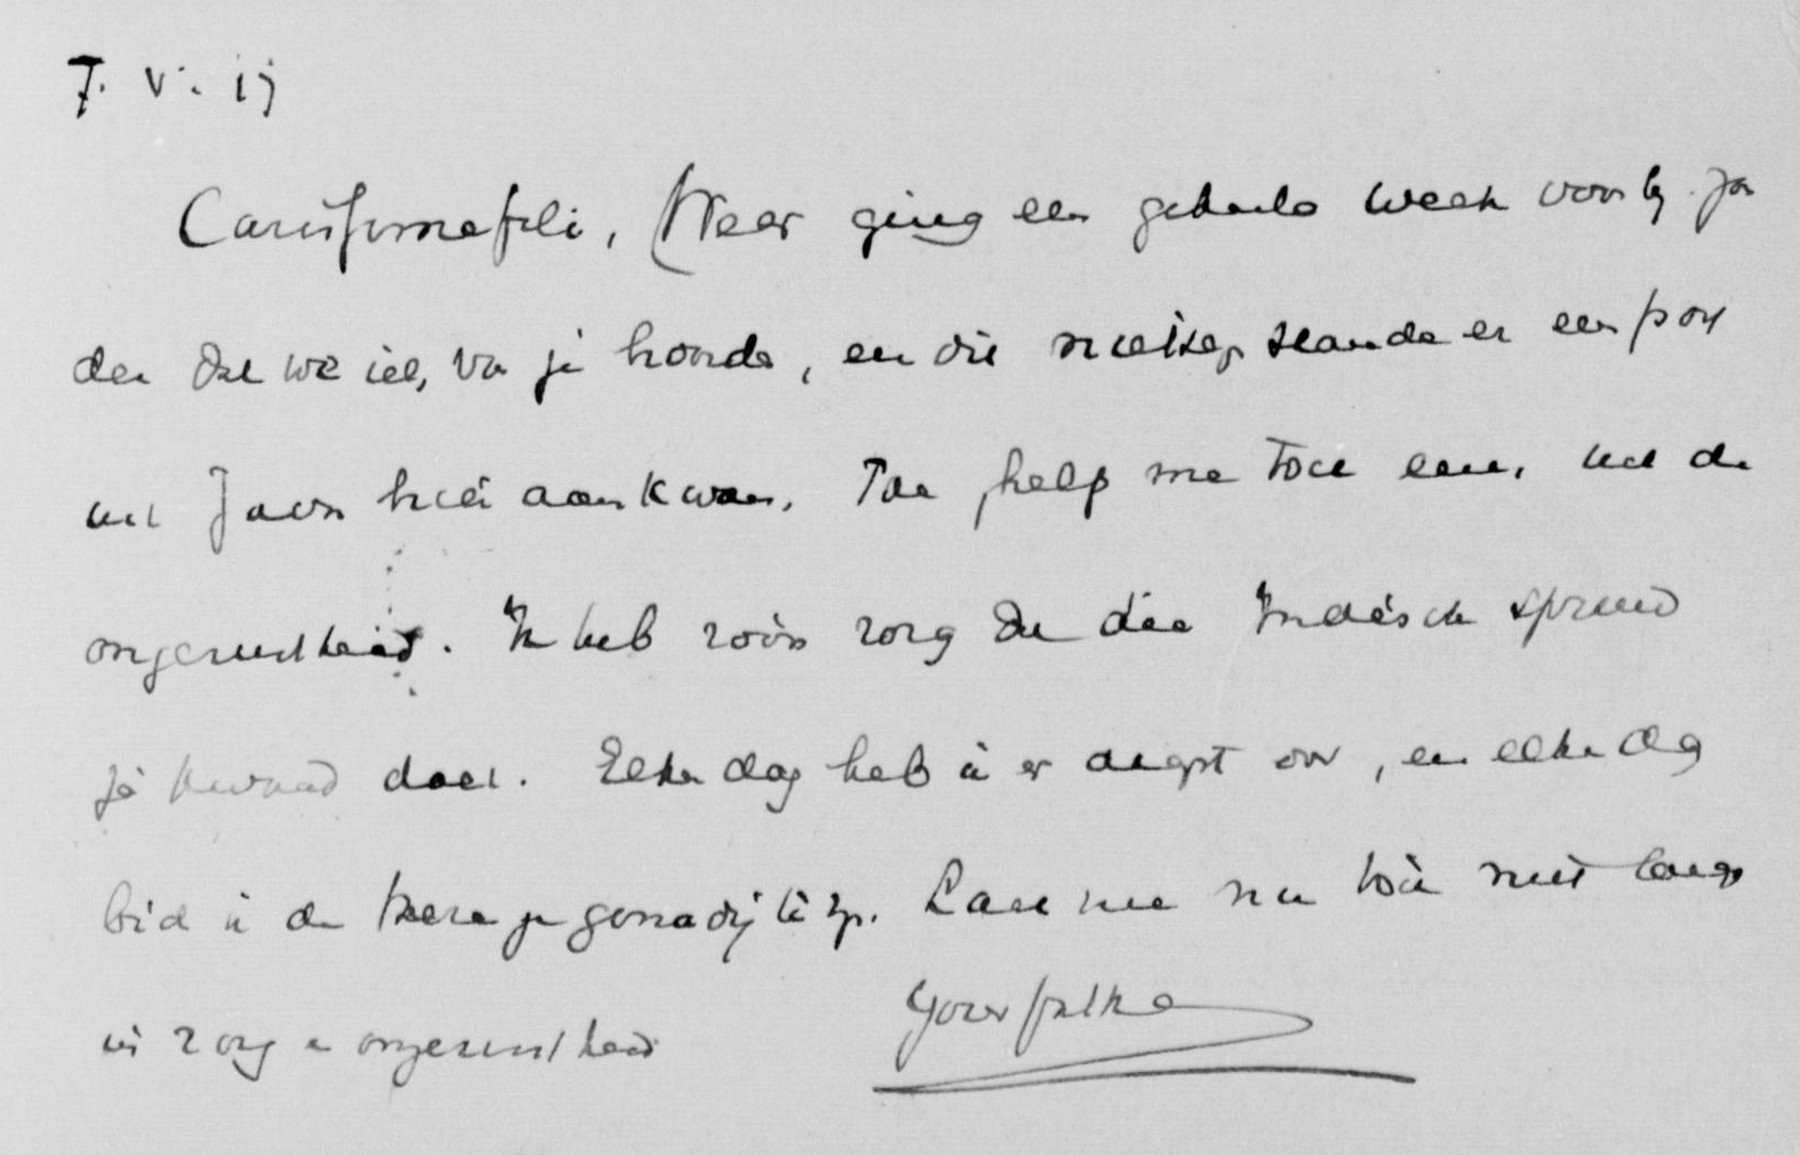 7. V. 17
Carissime fili, Weer ging een geheele week voorbij zon
der dat we iets van je hoorde, en die niettegenstaande er een post
uit Java hier aankwam. Toe, help me toch eens uit de
ongerustheid. Ik heb zoo'n zorg dat die Indisch
je kwaad doet. Elke dag heb ik er angst over, en elke dag
bid ik de Heere je genadig te zijn. Laat me nu toch niet langer
in zorg en ongerustheid